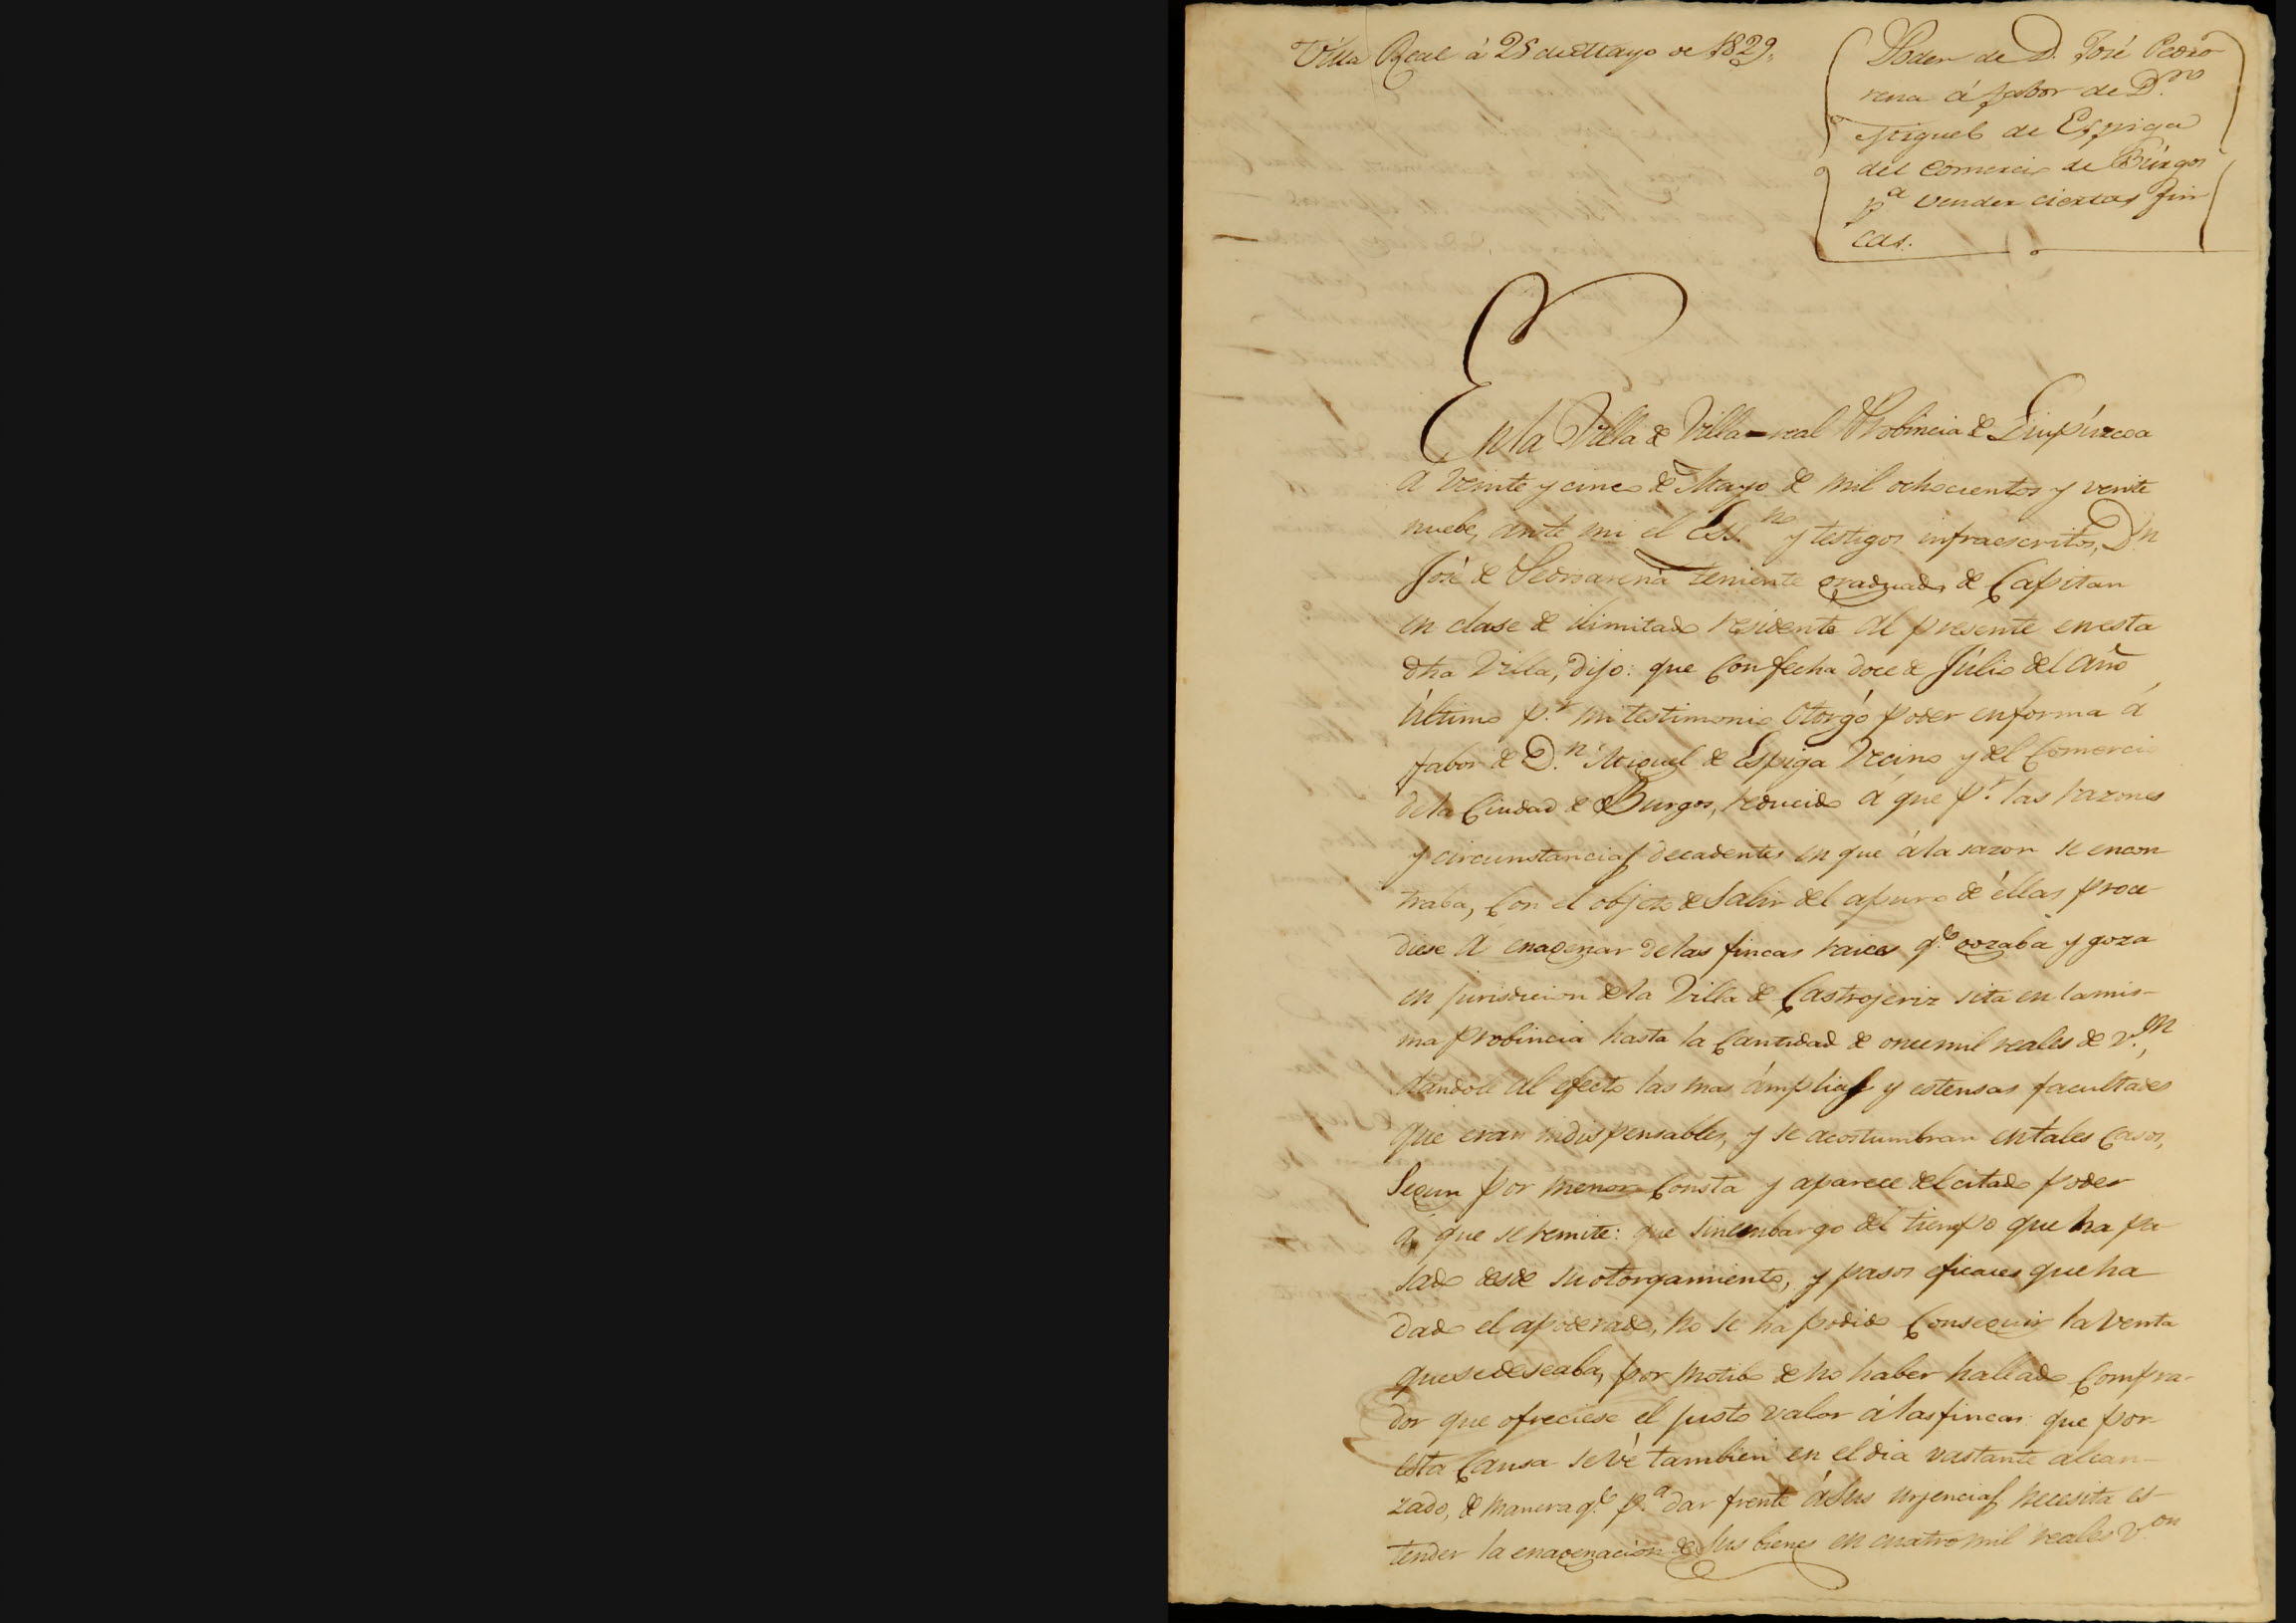 Villa Real à 25 de Mayo de 1829.
Poder de D. José Pedro
rena á fabor de D.n
Miguel de Espiga
del comercio de Búrgos
p.a vender ciertas fin
cas.
En la Villa de Villa-real Probincia de Guipúzcoa
á veinte y cinco de Mayo de mil ochocientos y veinte
nuebe, ante mi el Ess.no y testigos infraescritos, D.n
José de Pedrorena teniente graduado de Capitan
en clase de ilimitado residente al presente en esta
dha Villa, dijo: que con fecha doce de Júlio del año
último p.r mi testimonio otorgó poder en forma á
fabor de D.n Miguel de Espiga Vecino y del Comercio
de la Ciudad de Burgos, reducido á que p.r las razones
y circunstancias decadentes en que á la sazon se encon
traba, con el objeto de salir del apuro de éllas proce
diese á enagenar de las fincas raices q.e gozaba y goza
en jurisdicion de la Villa de Castrojeriz sita en la mis-
ma probincia hasta la cantidad de once mil reales de v.on,
dandole al efecto las mas ámplias y estensas facultades
que eran indispensables, y se acostumbran en tales casos,
segun por menor consta y aparece del citado poder
á que se remite: que sin embargo del tiempo que ha pa
sado desde su otorgamiento, y pasos eficaces que ha
dado el apoderado, no se ha podido conseguir la venta
que se deseaba, por motibo de no haber hallado compra-
dor que ofreciese el justo valor á las fincas: que por
esta causa se vé tambien en el dia vastante alcan-
zado, de manera q.e p.a dar frente á sus urjencias necesita es-
tender la enagenacion de sus bienes en cuatro mil reales v.on